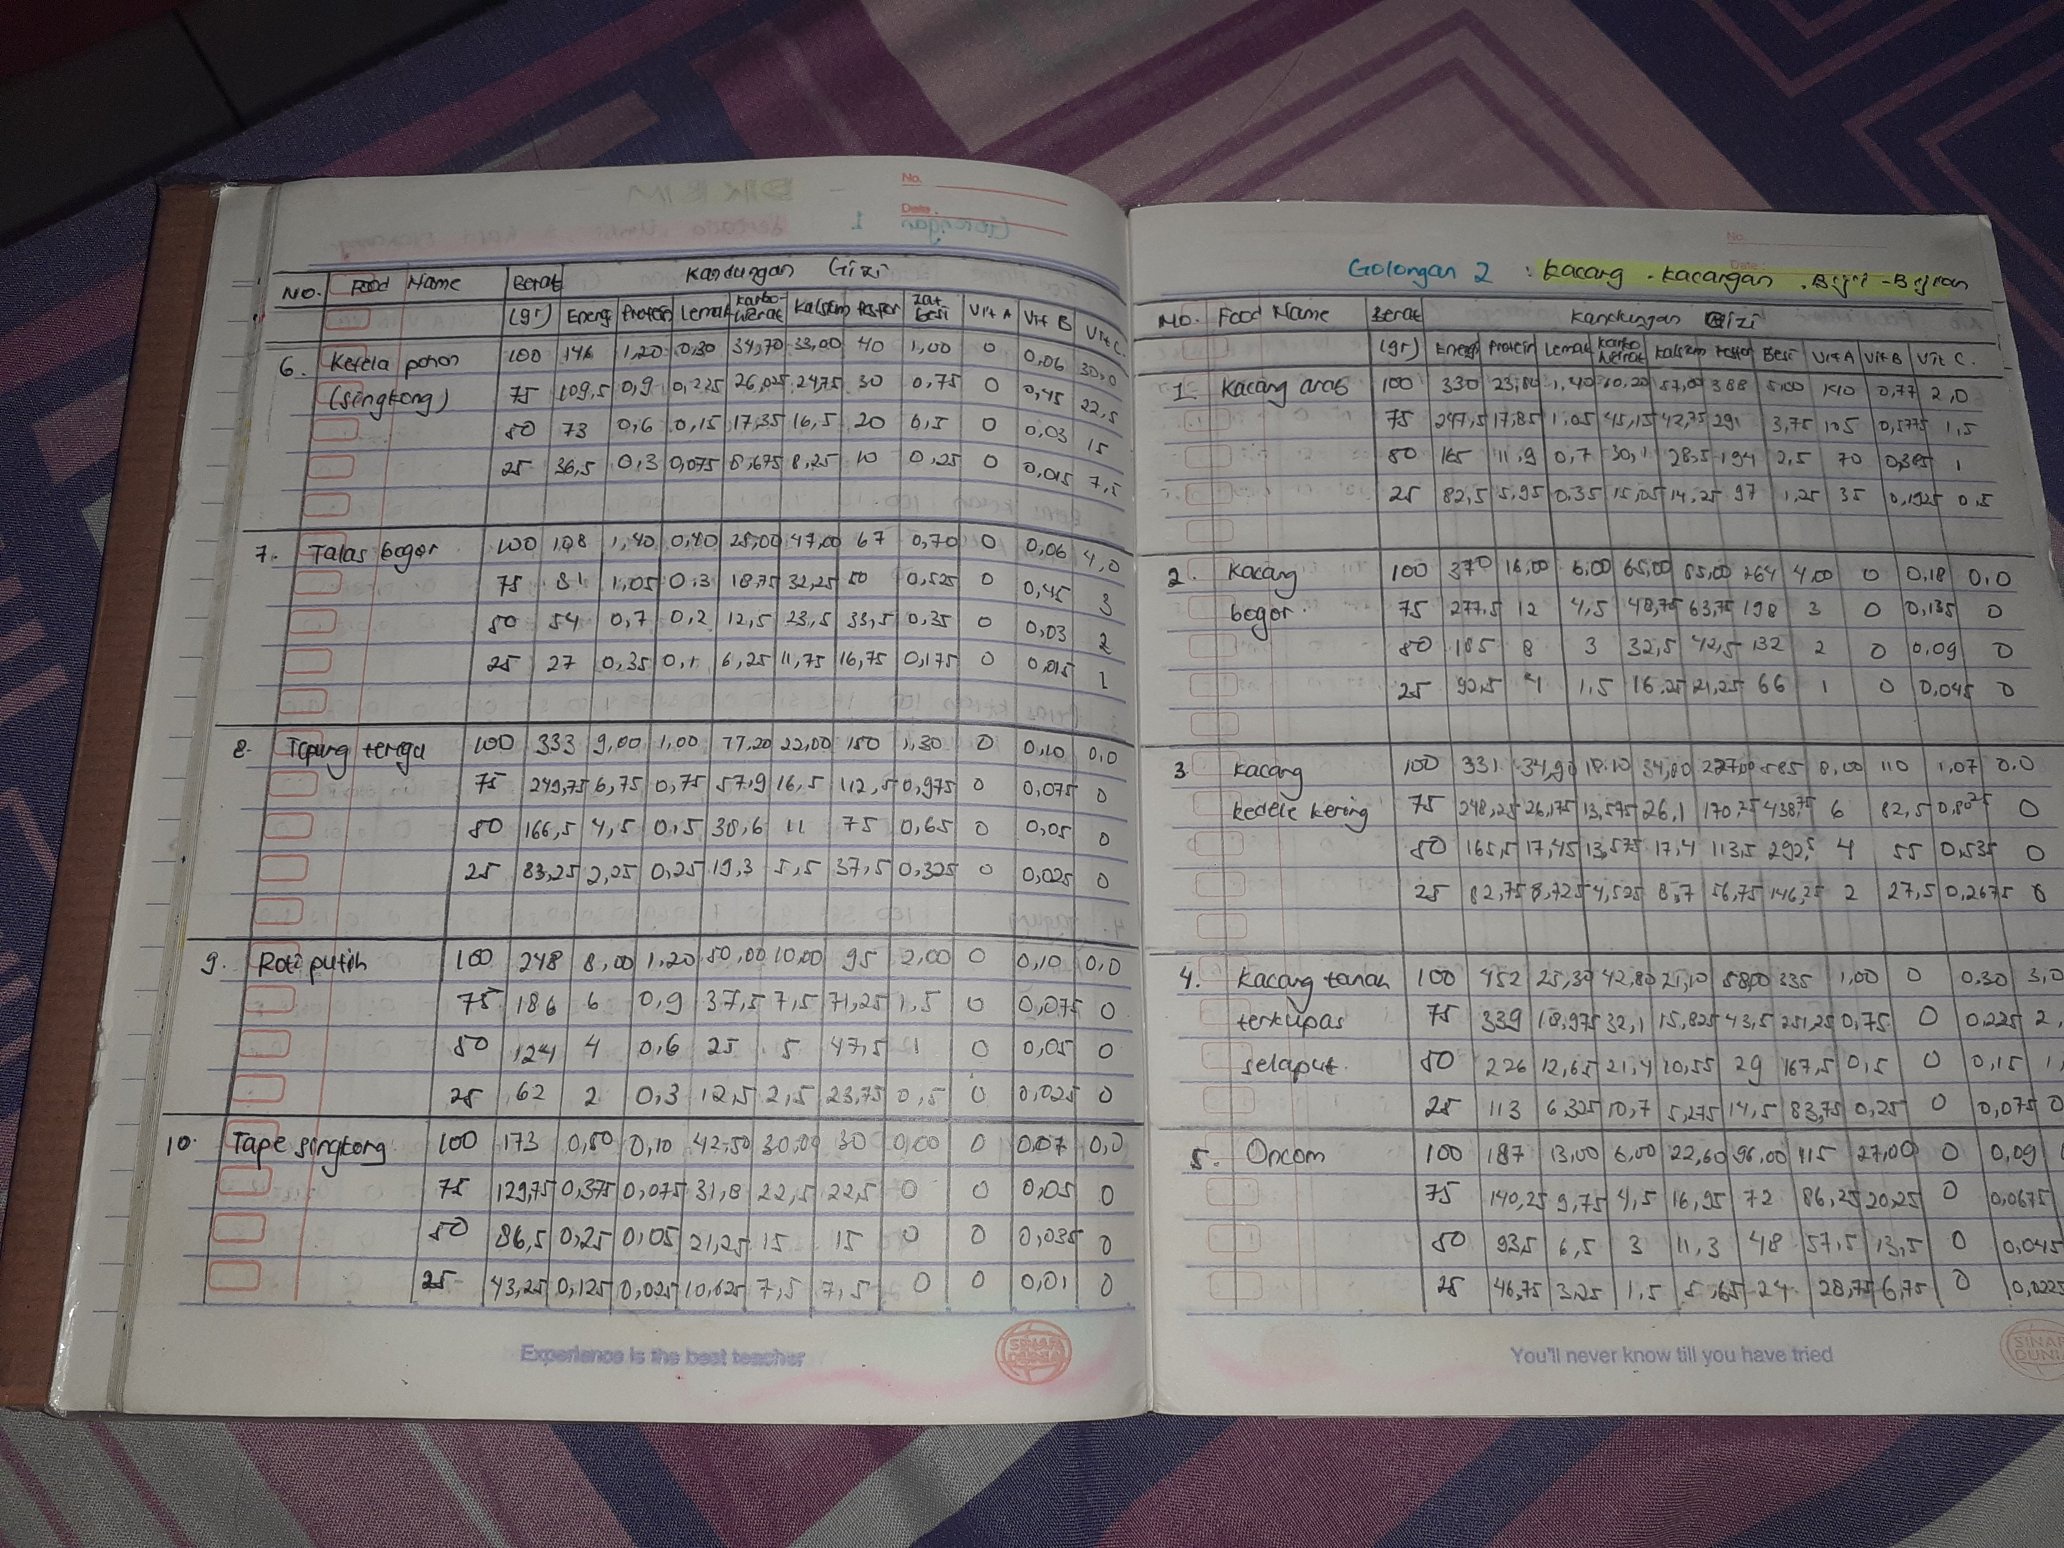 No.
Date.
NO. Food Name Berat Kandungan Gizi
(gr) Energi Protein Lemak Karbo-hidrat Kalsium Fosfor Zat besi Vit A Vit B Vit C.
6. Ketela pohon 100 146 1,20 0,30 34,70 33,00 40 1,00 0 0,06 30,0
(singkong) 75 109,5 0,9 0,225 26,025 24,75 30 0,75 0 0,45 22,5
50 73 0,6 0,15 17,35 16,5 20 0,5 0 0,03 15
25 36,5 0,3 0,075 8,675 8,25 10 0,25 0 0,015 7,5
7. Talas bogor 100 108 1,40 0,40 25,00 47,00 67 0,70 0 0,06 4,0
75 81 1,05 0,3 18,75 32,25 50 0,525 0 0,45 3
50 54 0,7 0,2 12,5 23,5 33,5 0,35 0 0,03 2
25 27 0,35 0,1 6,25 11,75 16,75 0,175 0 0,015 1
8. Tepung terigu 100 333 9,00 1,00 77,20 22,00 150 1,30 0 0,10 0,0
75 249,75 6,75 0,75 57,9 16,5 112,5 0,975 0 0,075 0
50 166,5 4,5 0,5 38,6 11 75 0,65 0 0,05 0
25 83,25 2,25 0,25 19,3 5,5 37,5 0,325 0 0,025 0
9. Roti putih 100 248 8,00 1,20 50,00 10,00 95 2,00 0 0,10 0,0
75 186 6 0,9 37,5 7,5 71,25 1,5 0 0,075 0
50 124 4 0,6 25 5 47,5 1 0 0,05 0
25 62 2 0,3 12,5 2,5 23,75 0,5 0 0,025 0
10. Tape singkong 100 173 0,50 0,10 42,50 30,00 30 0,00 0 0,07 0,0
75 129,75 0,375 0,075 31,8 22,5 22,5 0 0 0,05 0
50 86,5 0,25 0,05 21,25 15 15 0 0 0,035 0
25 43,25 0,125 0,025 10,625 7,5 7,5 0 0 0,01 0
Experience is the best teacher
SINAR DUNIA
No.
Date.
Golongan 2 : Kacang - kacangan . Biji - Bijian
No. Food Name Berat Kandungan Gizi
(gr) Energi Protein Lemak Karbo hidrat Kalsium Fosfor Besi Vit A Vit B Vit C.
1. Kacang arab 100 330 23,80 1,40 60,20 57,00 388 5,00 140 0,77 2,0
75 247,5 17,85 1,05 45,15 42,75 291 3,75 105 0,5775 1,5
50 165 11,9 0,7 30,1 28,5 194 2,5 70 0,385 1
25 82,5 5,95 0,35 15,05 14,25 97 1,25 35 0,1925 0,5
2. Kacang 100 370 16,00 6,00 65,00 85,00 264 4,00 0 0,18 0,0
bogor 75 277,5 12 4,5 48,75 63,75 198 3 0 0,135 0
50 185 8 3 32,5 42,5 132 2 0 0,09 0
25 92,5 4 1,5 16,25 21,25 66 1 0 0,045 0
3. Kacang 100 331 34,90 18,10 34,80 227,00 585 8,00 110 1,07 0,0
kedele kering 75 248,25 26,175 13,575 26,1 170,25 438,75 6 82,5 0,8025 0
50 165,5 17,45 13,575 17,4 113,5 292,5 4 55 0,535 0
25 82,75 8,725 4,525 8,7 56,75 146,25 2 27,5 0,2675 0
4. Kacang tanah 100 452 25,30 42,80 21,10 58,00 335 1,00 0 0,30 3,0
terkupas 75 339 18,975 32,1 15,825 43,5 251,25 0,75 0 0,225 2,
selaput. 50 226 12,65 21,4 10,55 29 167,5 0,5 0 0,15 1,
25 113 6,325 10,7 5,275 14,5 83,75 0,25 0 0,075 0
5. Oncom 100 187 13,00 6,00 22,60 96,00 115 27,00 0 0,09
75 140,25 9,75 4,5 16,95 72 86,25 20,25 0 0,0675
50 93,5 6,5 3 11,3 48 57,5 13,5 0 0,045
25 46,75 3,25 1,5 5,65 24 28,75 6,75 0 0,0225
You'll never know till you have tried
SINAR DUNIA